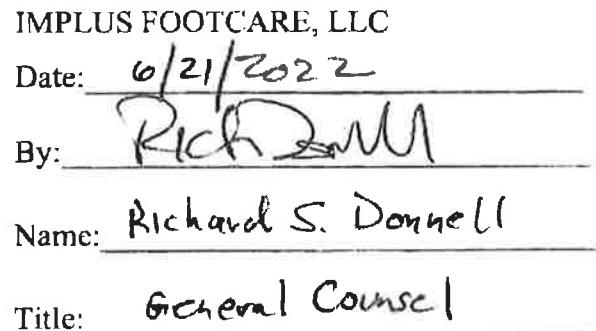 IMPLUS FOOTCARE, LLC
Date: 6/21/2022
By: Rich Donnell
Name: Richard S. Donnell
Title: General Counsel